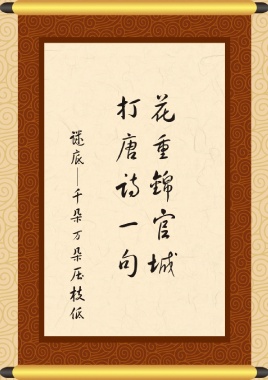 花重錦官城
打唐詩一句
謎底—千朵万朵压枝低